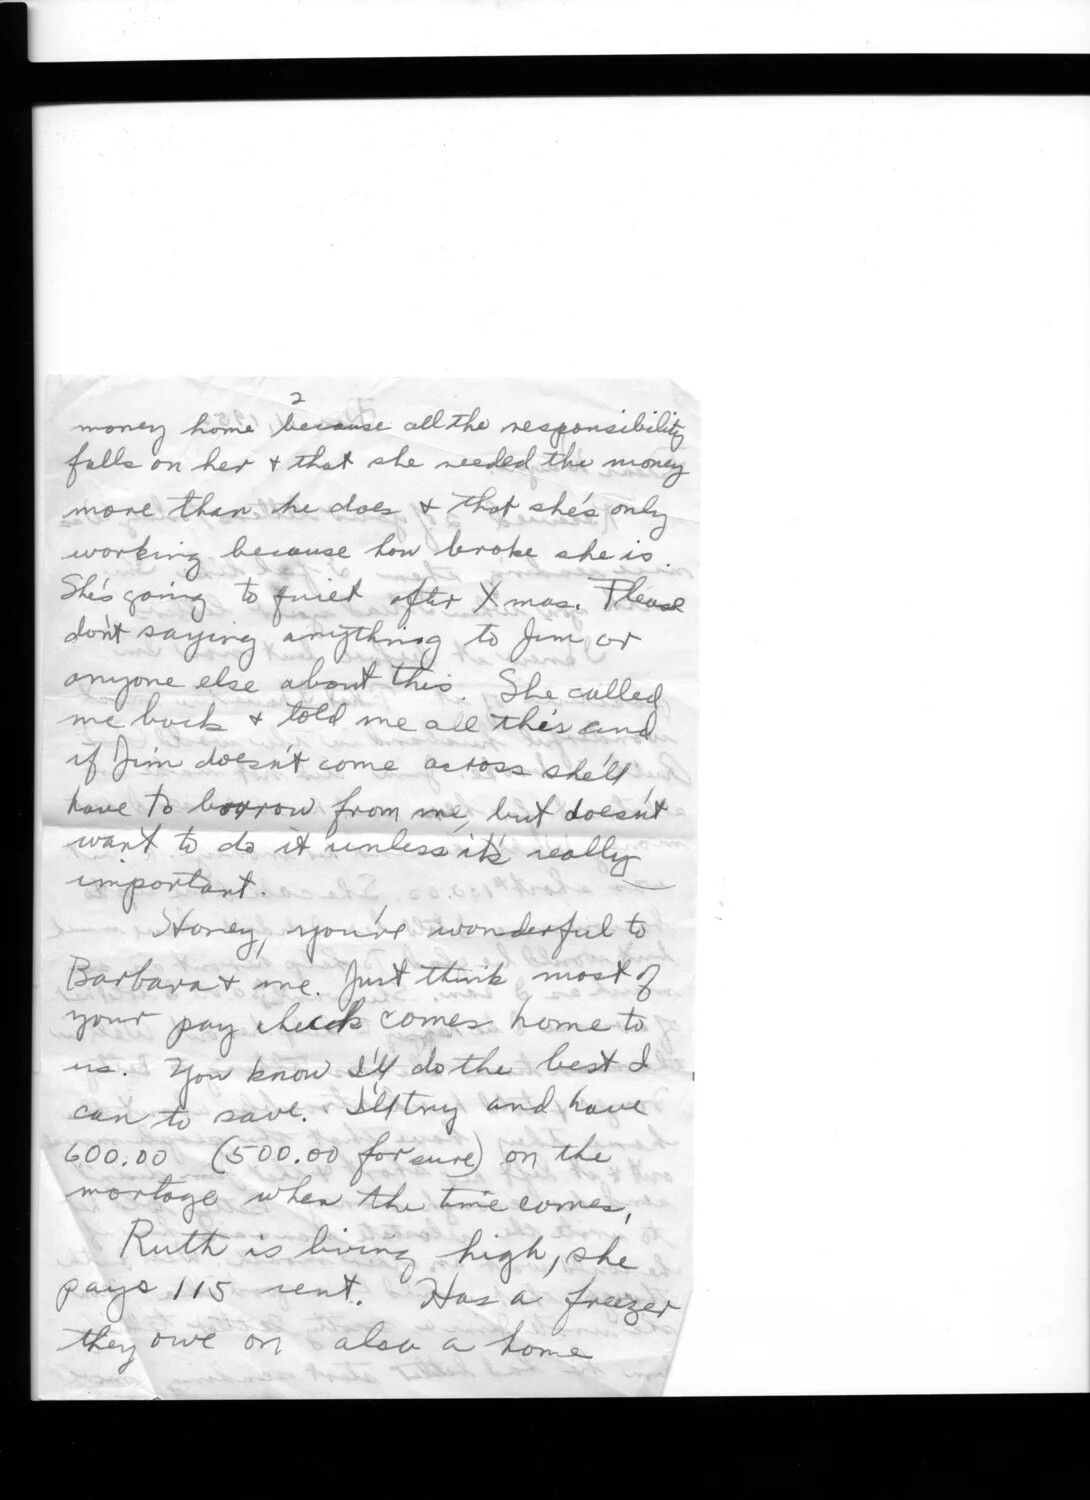 2
money home because all the responsibility
falls on her & that she needed the money
more than he does & that she's only
working because how broke she is.
She's going to quiet after Xmas. Please
don't saying anything to Jim or
anyone else about this. She called
me back & told me all this and
if Jim doesn't come across she'll
have to borrow from me, but doesn't
want to do it unless it's really
important.
Honey, you're wonderful to
Barbara & me. Just think most of
your pay check comes home to
us. You know I'll do the best I
can to save. I'll try and have
600.00 (500.00 for sure) on the
mortage when the time comes,
Ruth is living high, she
pays 115 rent. Has a freezer
they owe on also a home